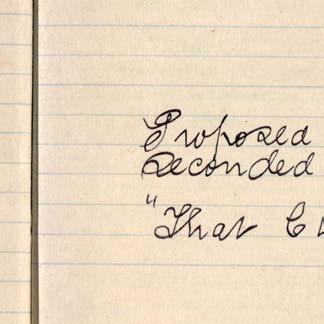 Proposed
Seconded
"That C